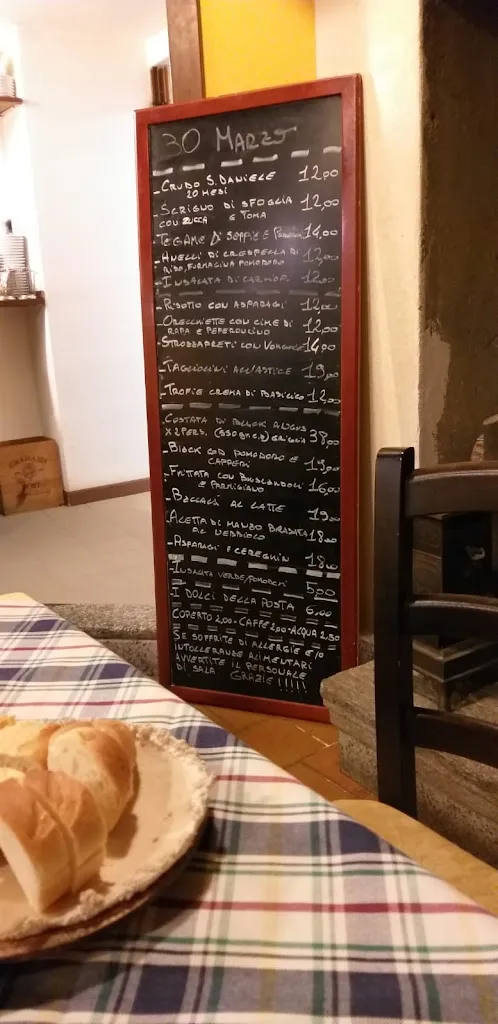 30 MARZO
- CRUDO S. DANIELE 12,00
20 MESI
- SCRIGNO DI SFOGLIA 12,00
CON ZUCCA E TOMA
- TEGAME DI SEPPIE E 14,00
- ANELLI DI CRESPELLA DI 12,00
RISO, FORMAGINA POMODORO
- INSALATA DI CARCIOFI 12,00
- RISOTTO CON ASPARAGI 12,00
- ORECCHIETTE CON CIME DI 12,00
RAPA E PEPERONCINO
- STROZZAPRETI CON VONGOLE 14,00
- TAGLIOLINI ALL'ASTICE 19,00
- TROFIE CREMA DI BASILICO 12,00
- COSTATA DI BLACK ANGUS 38,00
X 2 PERS. GRIGLIA
- BLACK COD POMODORO E 19,00
CAPPERI
- FRITTATA CON 16,00
E PARMIGIANO
- BACCALÀ AL LATTE 19,00
- ALETTA DI MANZO BRASATA 18,00
AL NEBBIOLO
- ASPARAGI E CEREGHIN 18,00
- INSALATA VERDE/POMODORI 5,00
- I DOLCI DELLA POSTA 6,00
COPERTO 2,00 - CAFFE 2,00 - ACQUA 2,50
SE SOFFRITE DI ALLERGIE E/O
INTOLLERANZE ALIMENTARI
AVVERTITE IL PERSONALE
DI SALA GRAZIE!!!!!
GRAHAM'S
PORT